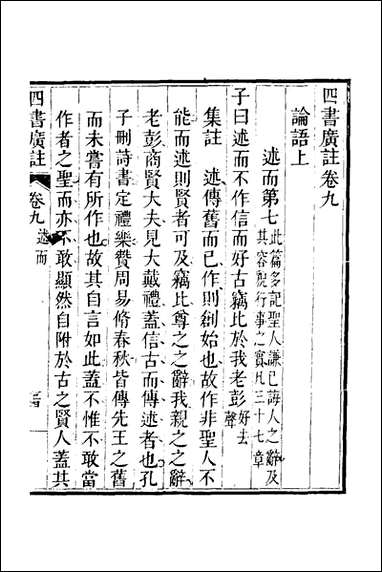 四書廣註卷九
論語上
述而第七
此篇多記聖人謙己誨人之辭及
其容貌行事之實凡三十七章
子曰述而不作信而好古竊比於我老彭
好去
聲
集註　述傳舊而已作則創始也故作非聖人不
能而述則賢者可及竊比尊之之辭我親之之辭
老彭商賢大夫見大戴禮蓋信古而傳述者也孔
子刪詩書定禮樂贊周易脩春秋皆傳先王之舊
而未嘗有所作也故其自言如此蓋不惟不敢當
作者之聖而亦不敢顯然自附於古之賢人蓋其
四書廣註
卷九
述而